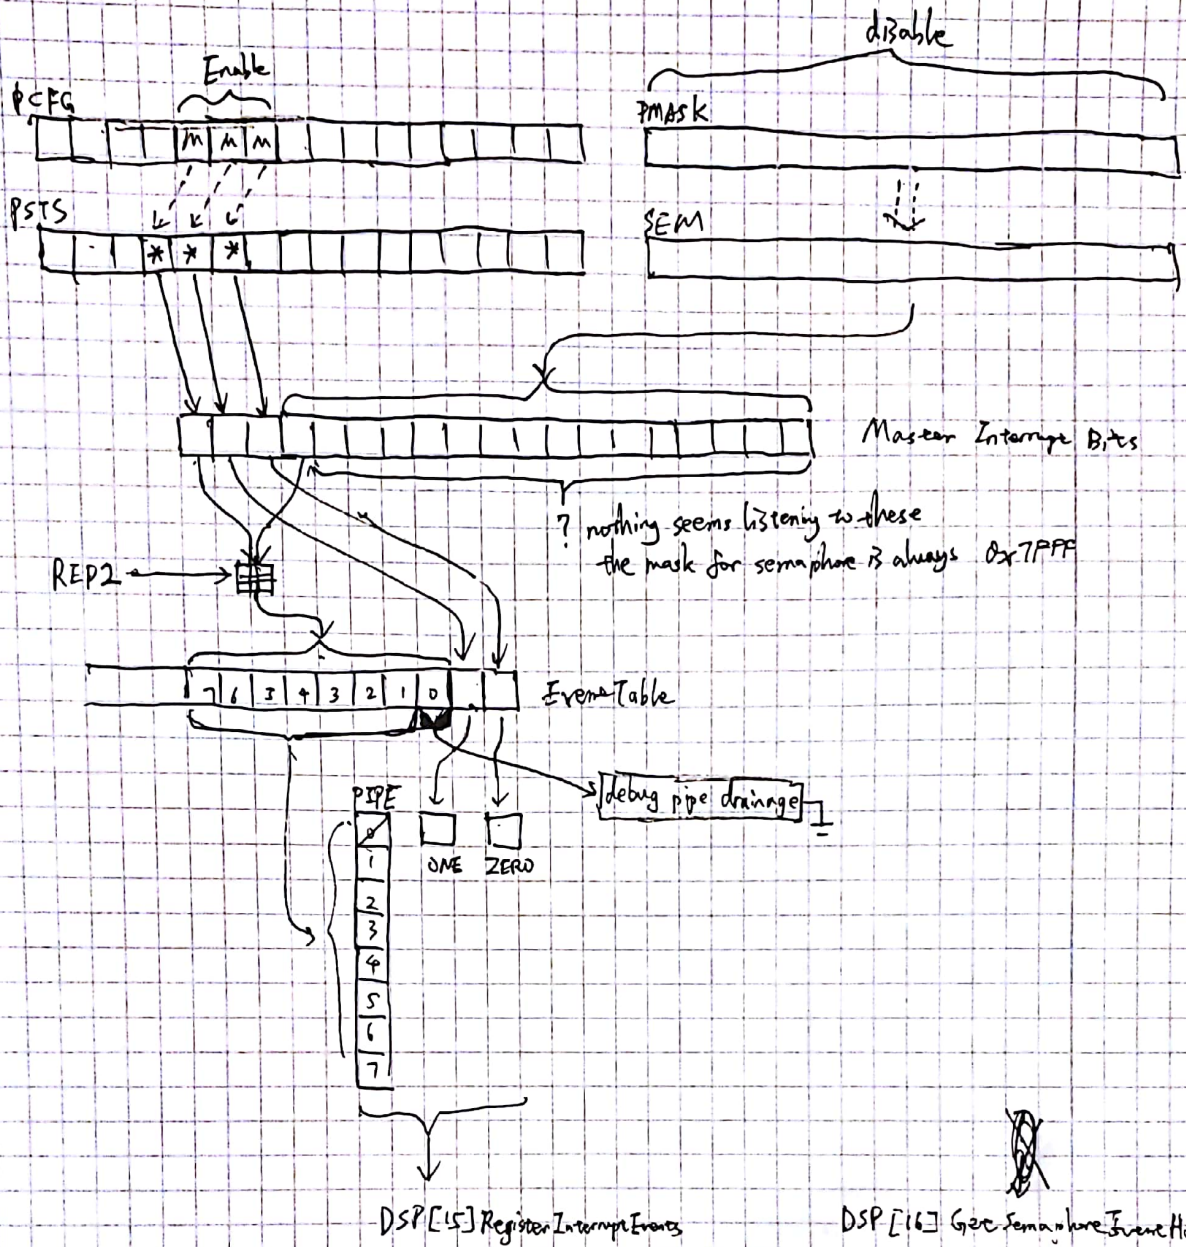 disable
Enable
PCFG
PMASK
m m m
PSTS
SEM
* * *
Master Interrupt Bits
? nothing seems listening to these
the mask for semaphore is always 0x7FFF
REP2
7 6 5 4 3 2 1 0
Event Table
debug pipe drainage
PIPE
0
1
ONE ZERO
2
3
4
5
6
7
DSP[15] RegisterInterruptEvents
DSP[16] Get Semaphore Event H